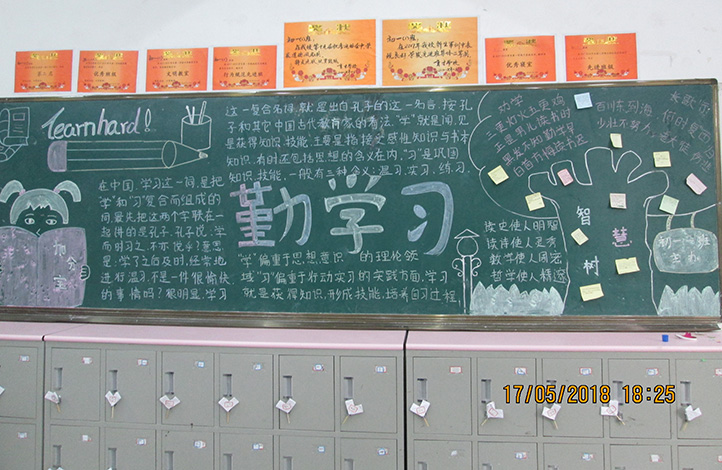 优秀班级
文明教室
优秀教室
先进班级
learn hard!
这一复合名词,就是出自孔子的这一名言,按孔
子和其它中国古代教育家的看法,“学”就是闻、见
是获得知识、技能,主要是指接受感性知识与书本
知识,有时还包括思想的含义在内。“习”是巩固
知识、技能,一般有三种含义:温习、实习、练习.
在中国,学习这一词,是把
“学”和“习”复合而组成的
词.最先把这两个字联在一
起讲的是孔子.孔子说:“学
而时习之,不亦说乎?”意思
是:学了之后及时、经常地
进行温习,不是一件很愉快
的事情吗?很明显,学习
勤学习
“学”偏重于思想意识的理论领
域“习”偏重于行动实习的实践方面.学习
就是获得知识,形成技能,培养自习过程.
劝学
三更灯火五更鸡
正是男儿读书时
黑发不知勤学早
白首方悔读书迟
长歌行
百川东到海,何时复西
少壮不努力,老大徒伤
读史使人明智
读诗使人灵秀
数学使人周密
哲学使人精邃
智慧树
初一八班
主办
17/05/2018 18:25